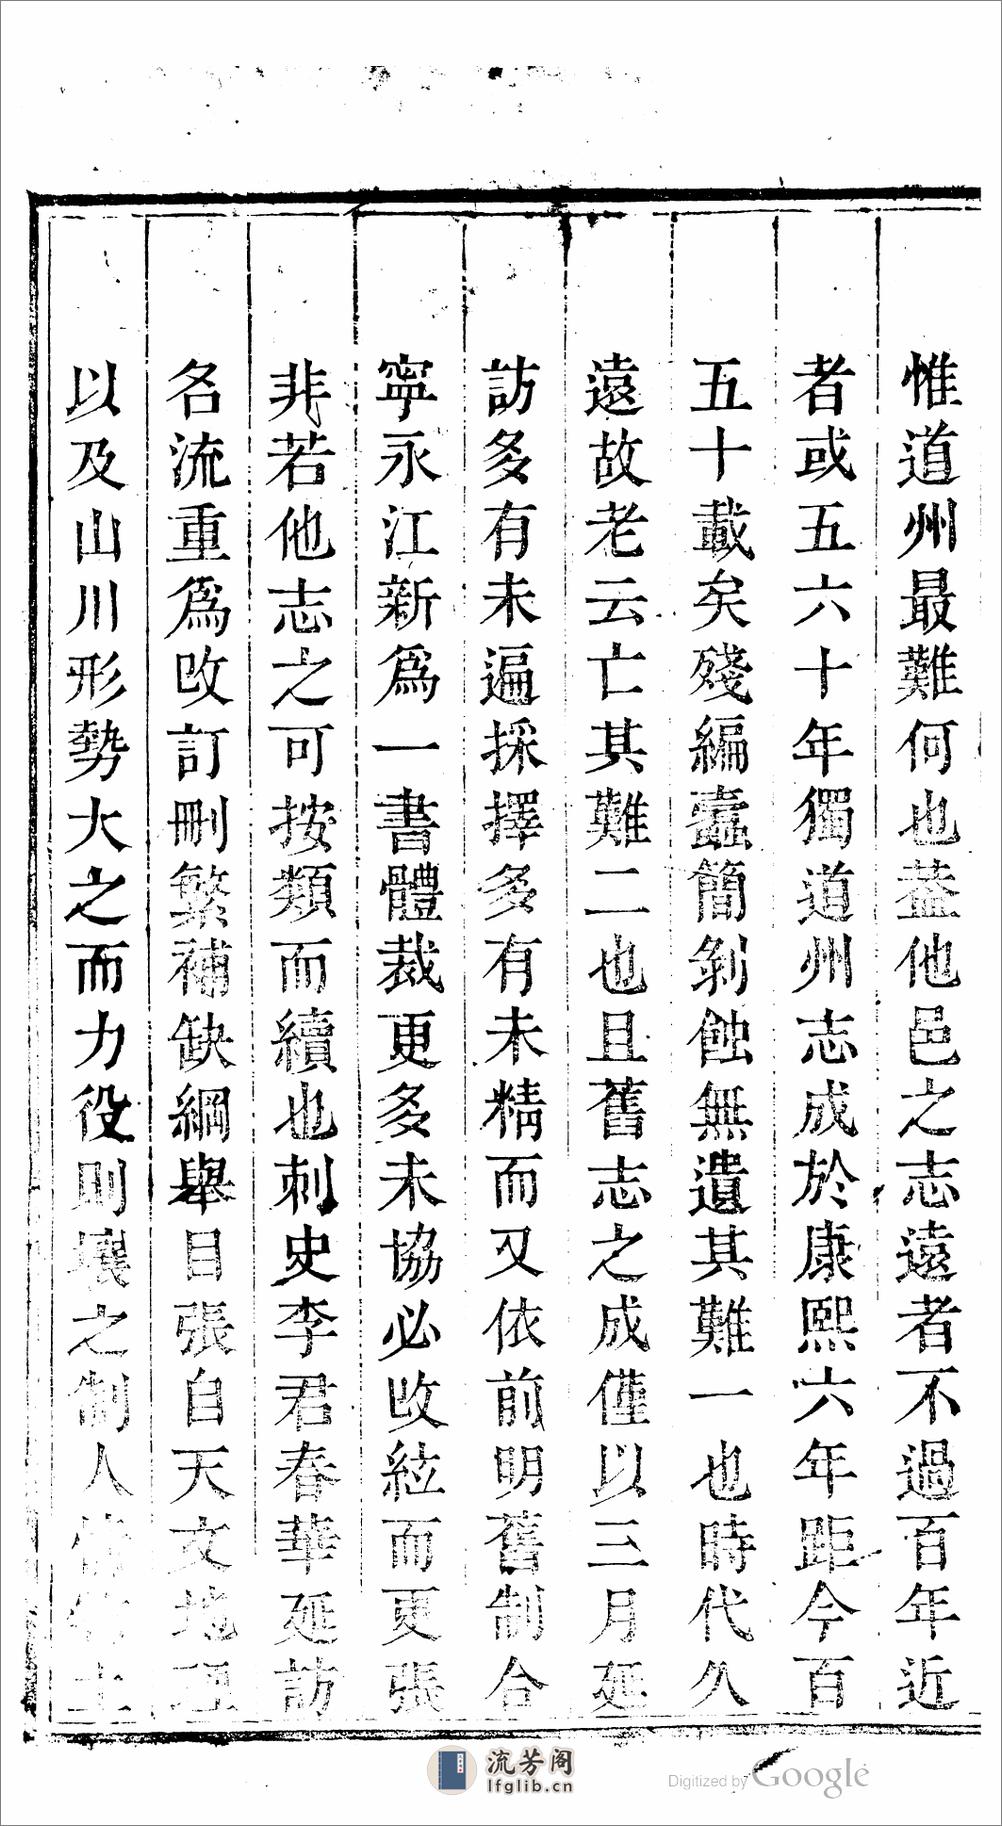 惟道州最難何也葢他邑之志遠者不過百年近
者或五六十年獨道州志成於康熙六年距今百
五十載矣殘編蠹簡剝蝕無遺其難一也時代久
遠故老云亡其難二也且舊志之成僅以三月延
訪多有未遍採擇多有未精而又依前明舊制合
寧永江新爲一書體裁更多未協必改絃而更張
非若他志之可按類而續也刺史李君春華延訪
名流重爲改訂刪繁補缺綱舉目張自天文地理
以及山川形勢大之而力役則壤之制人土
流芳阁
lfglib.cn
Digitized by Google